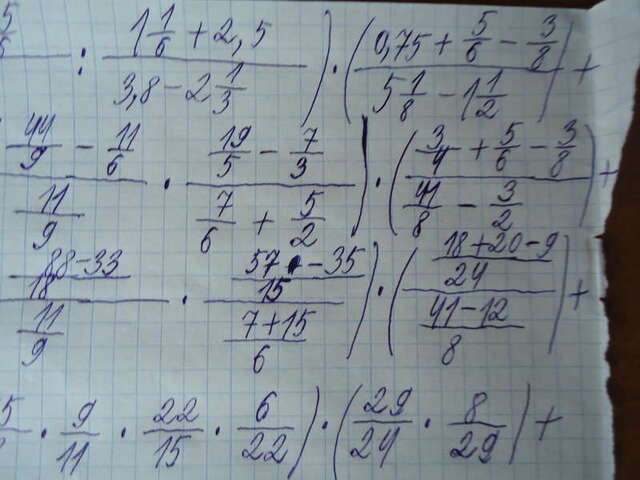 5/6 : (1 1/6 + 2,5)/(3,8 - 2 1/3)) · ((0,75 + 5/6 - 3/8)/(5 1/8 - 1 1/2)) +
(44/9 - 11/6)/(11/9) · (19/5 - 7/3)/(7/6 + 5/2)) · ((3/4 + 5/6 - 3/8)/(41/8 - 3/2)) +
((88-33)/18)/(11/9) · ((57-35)/15)/((7+15)/6)) · (((18+20-9)/24)/((41-12)/8)) +
5 · 9/11 · 22/15 · 6/22) · (29/24 · 8/29) +